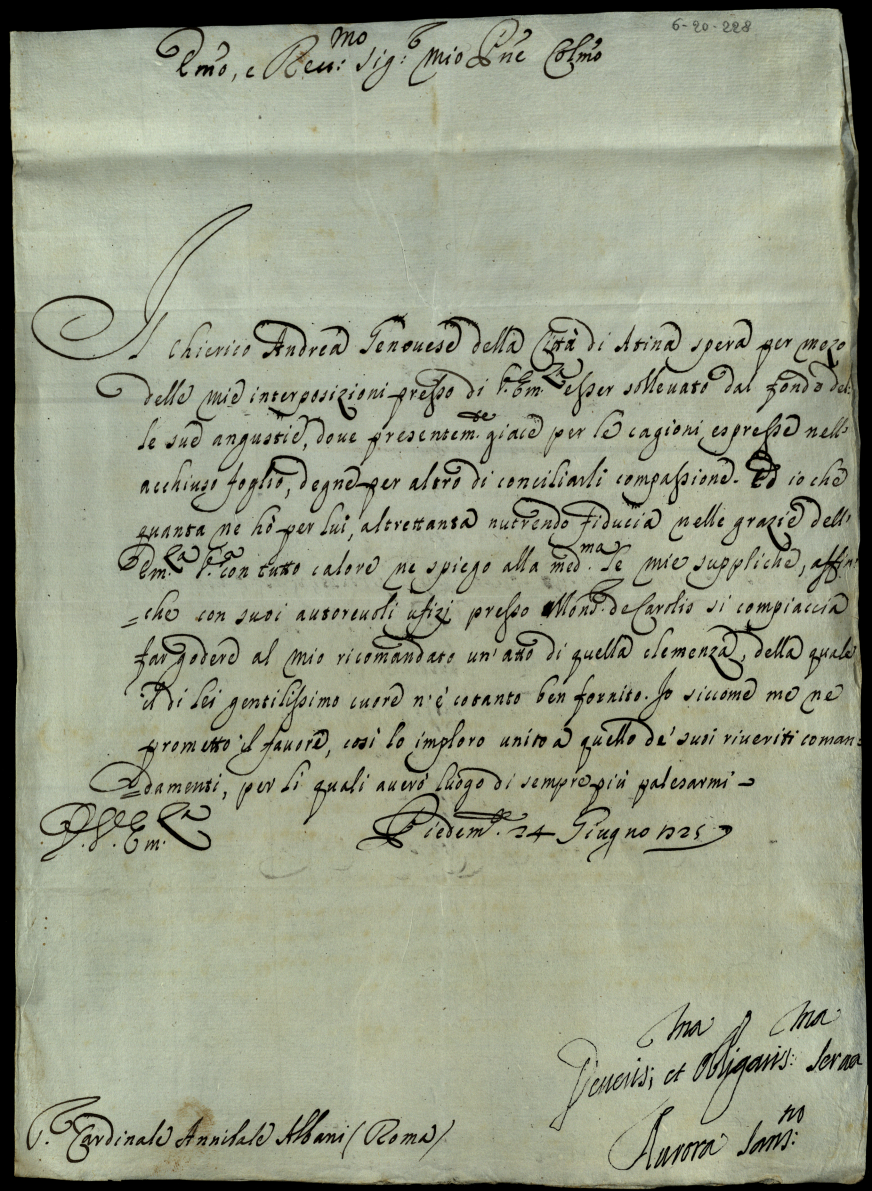 6-20-228
Emo, e Reu:mo Sig:e mio Pne Colmo
Il Chierico Andrea Genouese della Città di Atina spera per mezo
delle mie interposizioni presso di V. Em.za esser solleuato dal fondo del-
le sue angustie, doue presentem.te giace per le cagioni espresse nell'
acchiuso foglio, degne per altro di conciliarli compassione. Ed io che
quanta ne hò per lui, altrettanta nutrendo fiducia nelle grazie dell'
Em.za V.ra con tutto calore ne spiego alla med.ma le mie suppliche, affin
=che con suoi autoreuoli ufizj presso Mons.r de Carolis si compiaccia
far godere al mio ricomandato un'atto di quella clemenza, della quale
il di lei gentilissimo cuore n'è cotanto ben fornito. Io siccome me ne
prometto il fauore, così lo imploro unito a quello de' suoi riueriti coman=
=damenti, per li quali auerò luogo di sempre più palesarmi
D. V. Em.za
Piedem.te 24 Giugno 1725
Deuotis:ma et Obligatis:ma Serua
Aurora Sans:no
S.r Cardinale Annibale Albani (Roma)